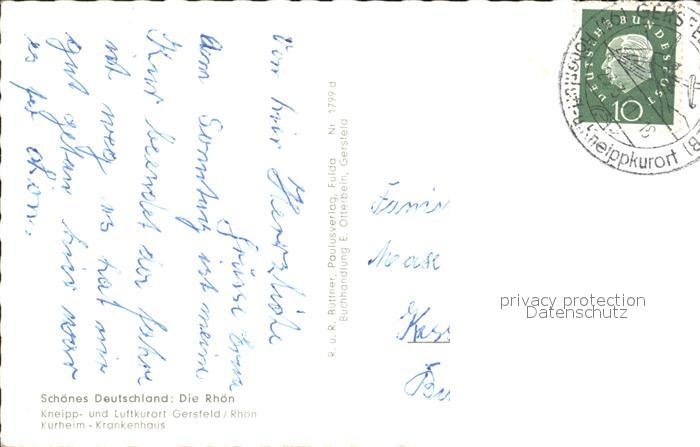 Von hier Herzliche
Grüsse Erna
Am Sonntag ist meine
Kur beendet der fahre
ich weg es hat mir
gut getan hier war
es so schön.
Schönes Deutschland: Die Rhön
Kneipp- und Luftkurort Gersfeld/Rhön
Kurheim-Krankenhaus
R. u. R. Büttner, Paulusverlag, Fulda Nr. 1799 d
Buchhandlung E. Otterbein, Gersfeld
DEUTSCHE BUNDESPOST
10
GERS
Kneippkurort
Fami
Kas
privacy protection
Datenschutz